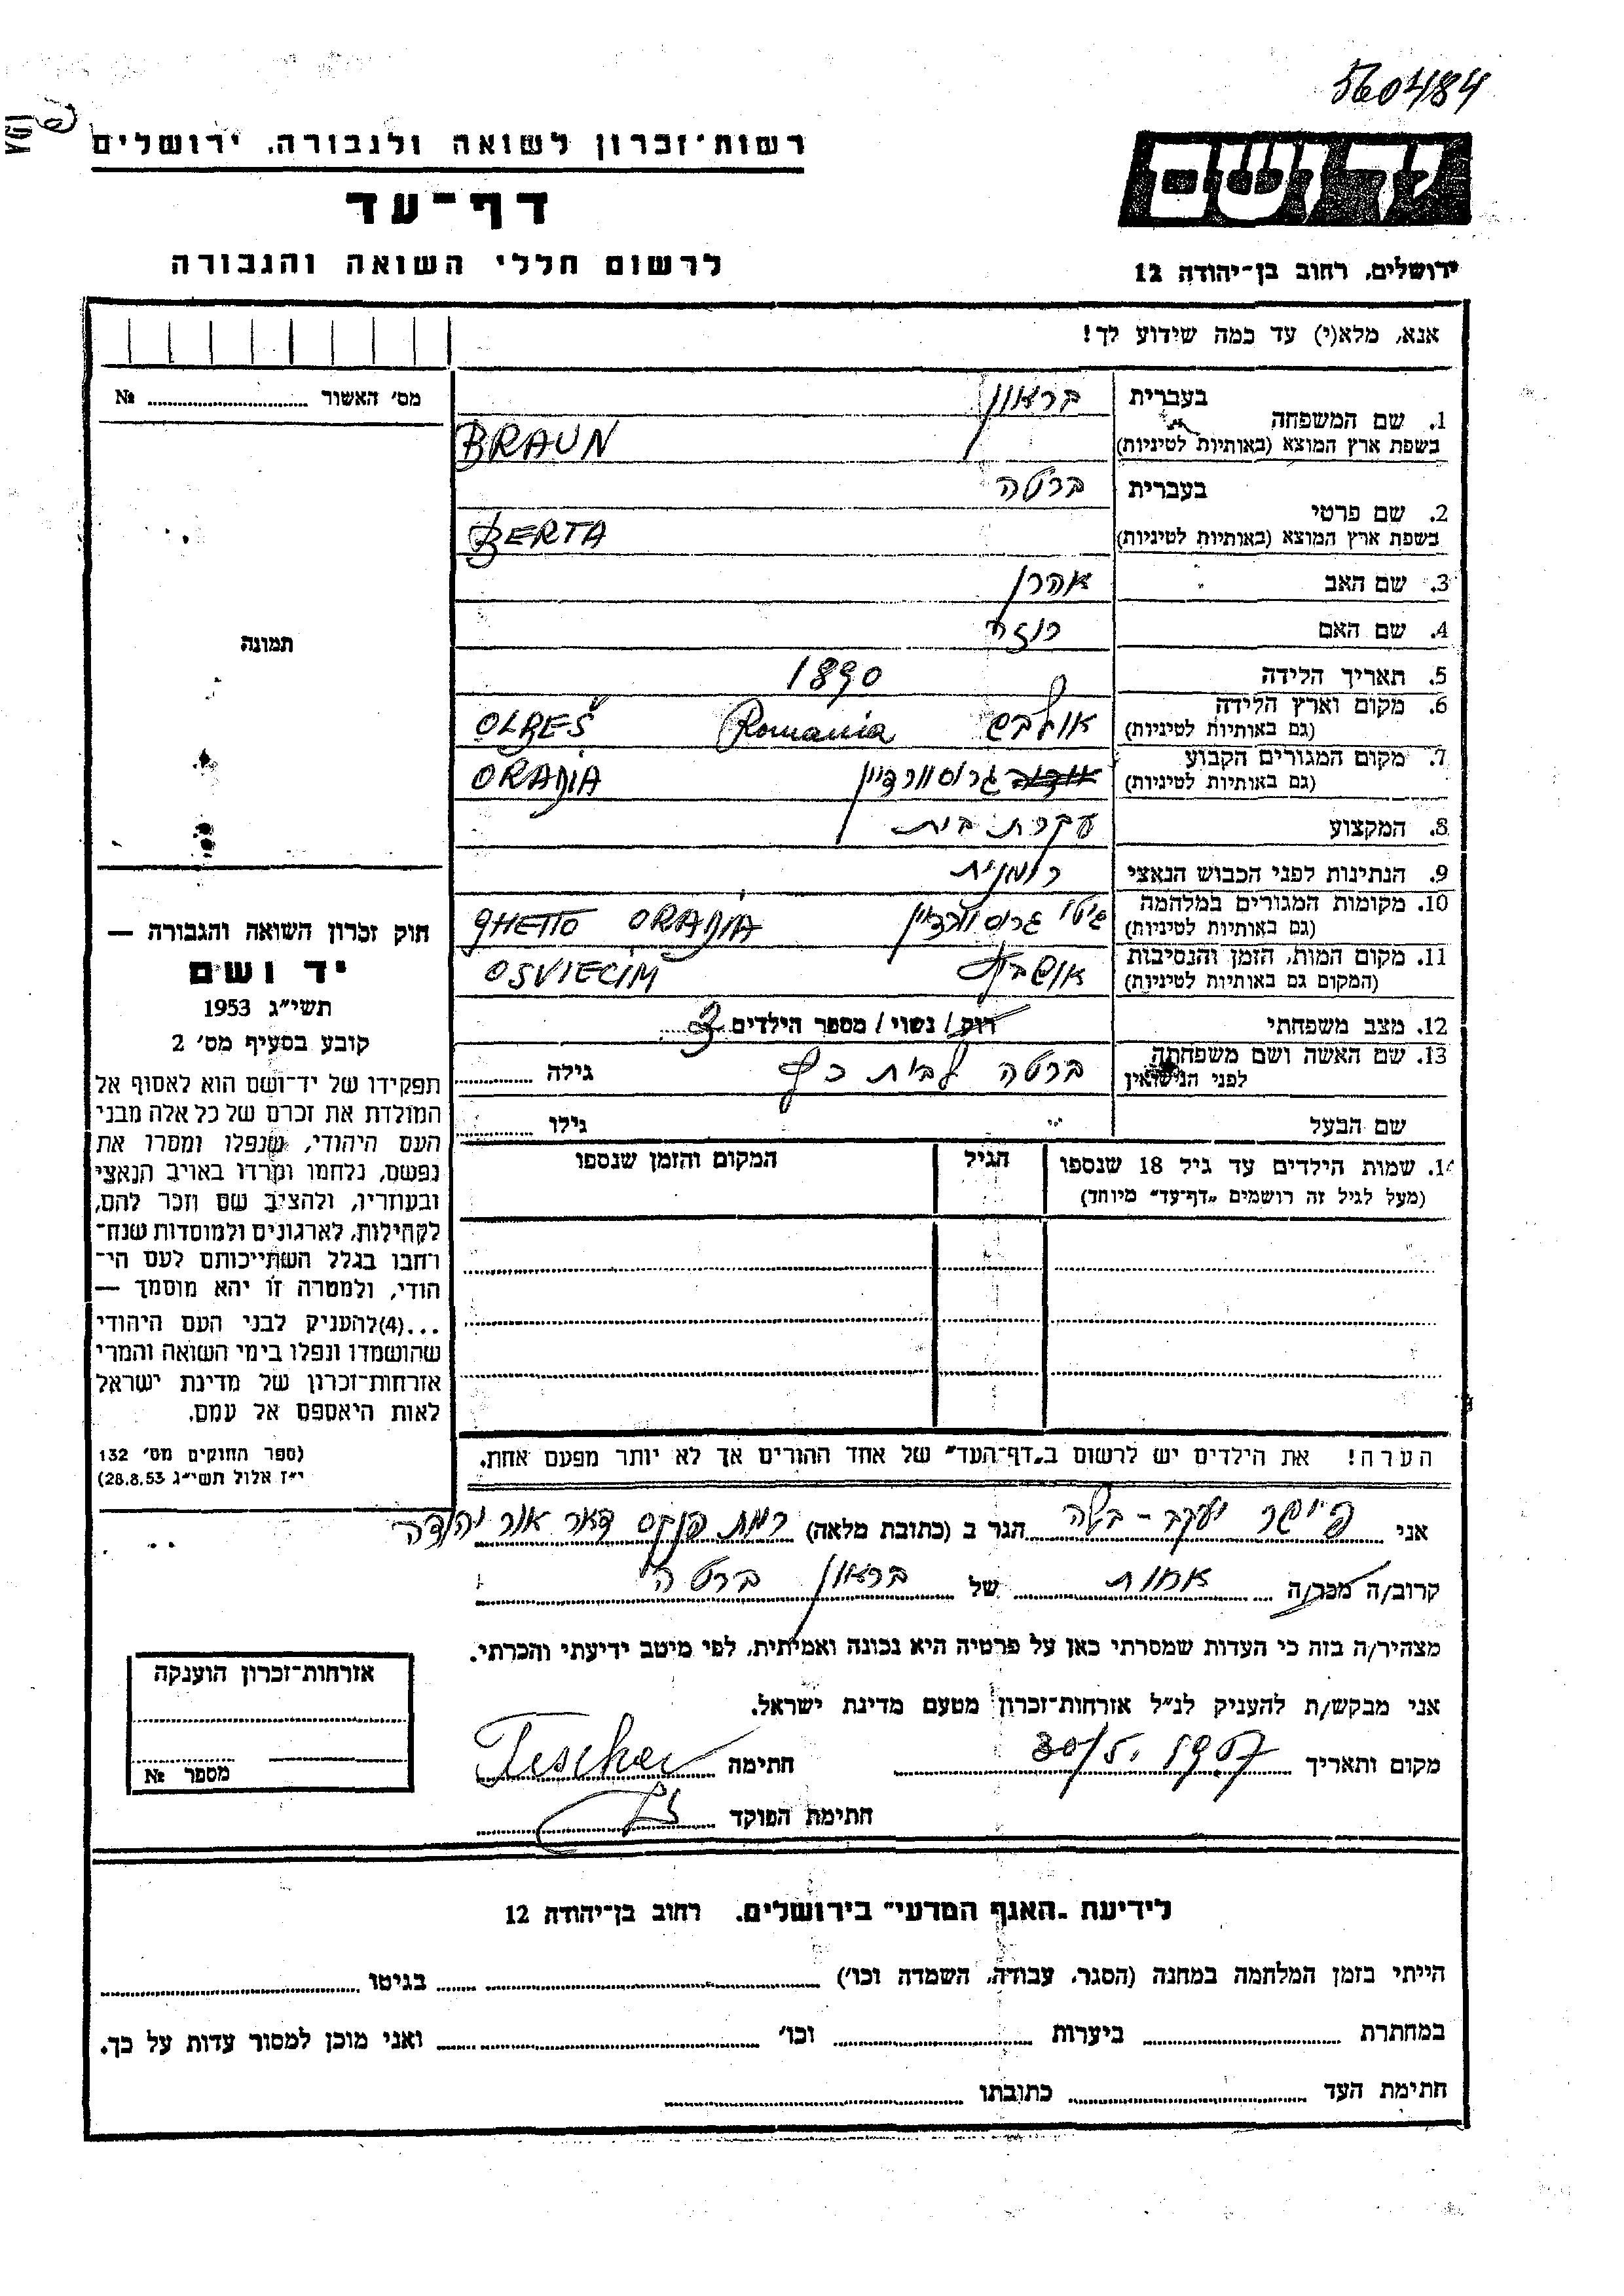 5604184
רשות־זכרון לשואה ולגבורה. ירושלים
יד ושם
דף־עד
לרשום חללי השואה והגבורה
ירושלים, רחוב בן־יהודה 12
אנא, מלא(י) עד כמה שידוע לך!
מס׳ האשור № 
1. שם המשפחה
בעברית בראון
בשפת ארץ המוצא (באותיות לטיניות) BRAUN
2. שם פרטי
בעברית ברטה
בשפת ארץ המוצא (באותיות לטיניות) BERTA
3. שם האב אהרן
4. שם האם רוזה
תמונה
5. תאריך הלידה 1890
6. מקום וארץ הלידה
(גם באותיות לטיניות) Romania OLBEŠ
7. מקום המגורים הקבוע
(גם באותיות לטיניות) גרוסוורדיין ORADIA
8. המקצוע עקרת בית
9. הנתינות לפני הכבוש הנאצי רומנית
10. מקומות המגורים במלחמה
(גם באותיות לטיניות) גיטו גרוסוורדיין GHETTO ORADIA
11. מקום המות, הזמן והנסיבות
(המקום גם באותיות לטיניות) OSVIECIM
12. מצב משפחתי רוק/ נשוי/ מספר הילדים 3
13. שם האשה ושם משפחתה
לפני הנישואין ברטה לבית גילה
שם הבעל גילו
14. שמות הילדים עד גיל 18 שנספו
(מעל לגיל זה רושמים „דף־עד״ מיוחד)
הגיל
המקום והזמן שנספו
הערה! את הילדים יש לרשום ב„דף־העד״ של אחד ההורים אך לא יותר מפעם אחת.
חוק זכרון השואה והגבורה —
יד ושם
תשי״ג 1953
קובע בסעיף מס׳ 2
תפקידו של יד־ושם הוא לאסוף אל
המולדת את זכרם של כל אלה מבני
העם היהודי, שנפלו ומסרו את
נפשם, נלחמו ומרדו באויב הנאצי
ובעוזריו, ולהציב שם וזכר להם,
לקהילות, לארגונים ולמוסדות שנח־
רבו בגלל השתייכותם לעם הי־
הודי, ולמטרה זו יהא מוסמך —
...(4)להעניק לבני העם היהודי
שהושמדו ונפלו בימי השואה והמרי
אזרחות־זכרון של מדינת ישראל
לאות היאספם אל עמם.
(ספר החוקים מס׳ 132
י״ז אלול תשי״ג 28.8.53)
אני פישר יעקב - הגר ב (כתובת מלאה) רמת פנקס דאר אור יהודה
קרוב/ה מכר/ה אחות של בראון ברטה
מצהיר/ה בזה כי העדות שמסרתי כאן על פרטיה היא נכונה ואמיתית, לפי מיטב ידיעתי והכרתי.
אני מבקש/ת להעניק לנ״ל אזרחות־זכרון מטעם מדינת ישראל.
מקום ותאריך 30/5. 1957 חתימה
חתימת הפוקד
אזרחות־זכרון הוענקה
מספר №
לידיעת „האגף המדעי״ בירושלים. רחוב בן־יהודה 12
הייתי בזמן המלחמה במחנה (הסגר, עבודה, השמדה וכו׳) בגיטו
במחתרת ביערות וכו׳ ואני מוכן למסור עדות על כך.
חתימת העד כתובתו